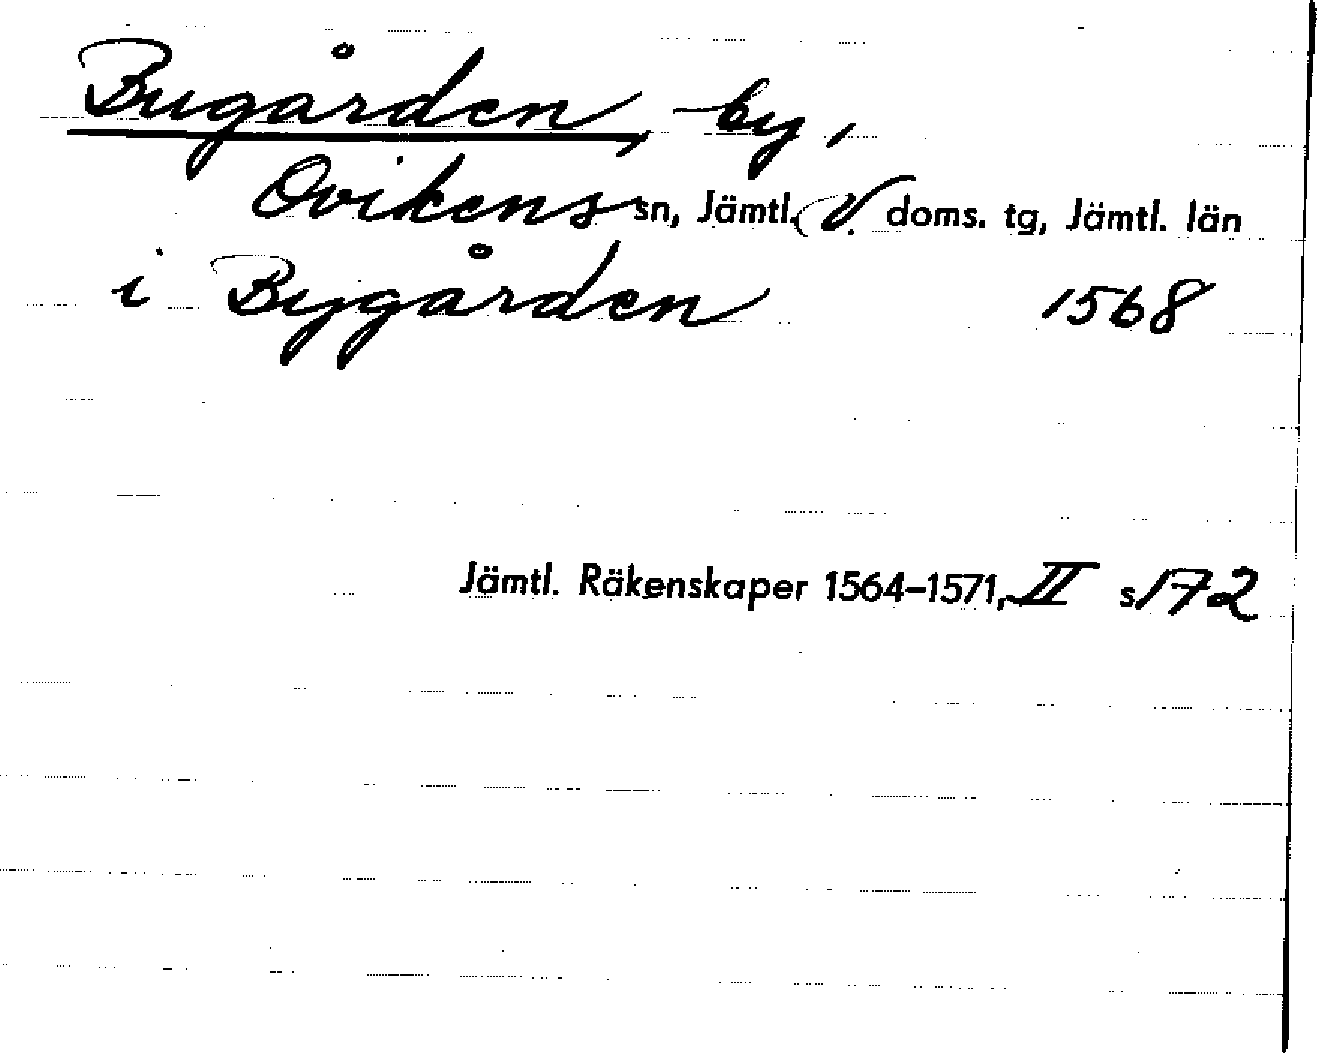 Bugården, by,
Ovikens sn, Jämtl. V. doms. tg, Jämtl. län
i Bygården 1568
Jämtl. Räkenskaper 1564–1571, II s 172